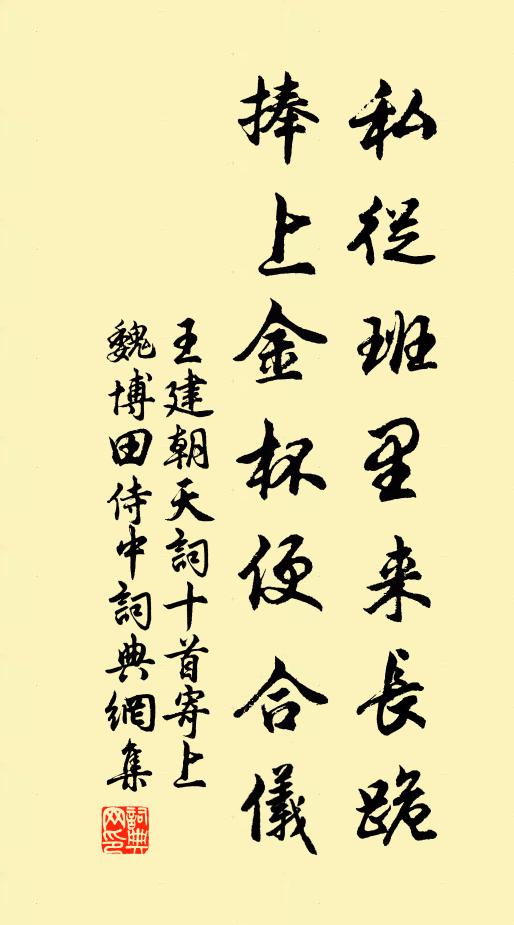 私從班里来長跪
捧上金杯便合儀
王建朝天詞十首寄上
魏博田侍中詞典網集
詞典
网印